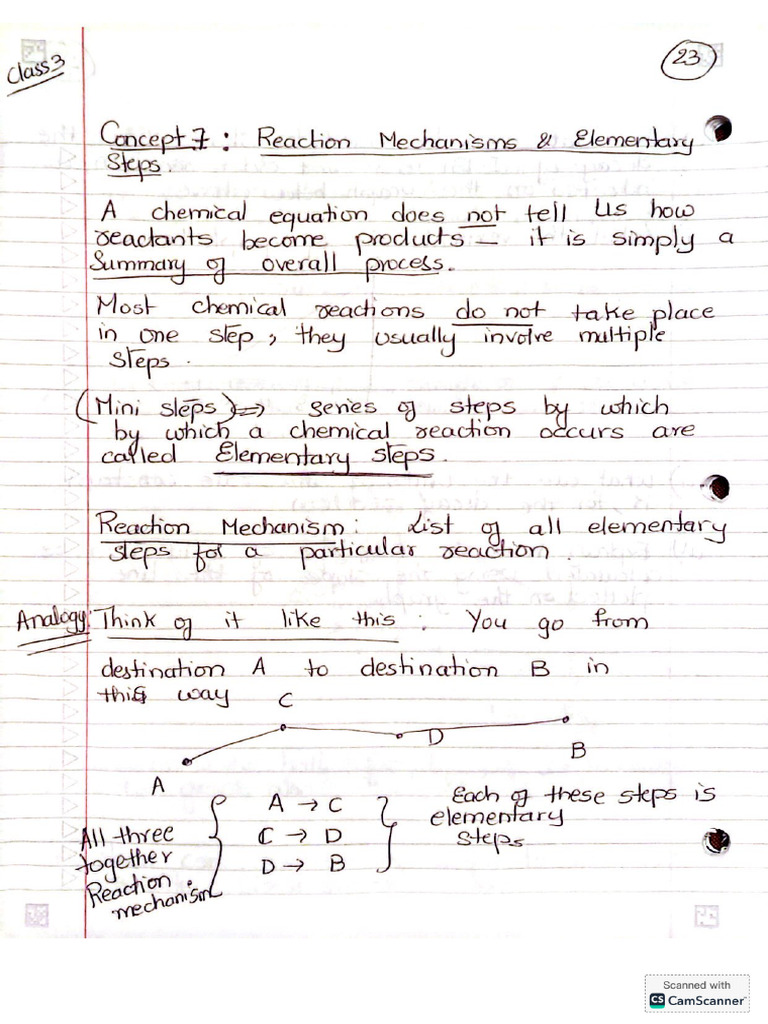 Class 3
23
Concept 7 : Reaction Mechanisms & Elementary
Steps.
A chemical equation does not tell us how
reactants become products – it is simply a
Summary of overall process.
Most chemical reactions do not take place
in one step, they usually involve multiple
steps.
(Mini steps) ⇒ series of steps by which
by which a chemical reaction occurs are
called Elementary steps.
Reaction Mechanism : List of all elementary
steps for a particular reaction.
Analogy: Think of it like this : You go from
destination A to destination B in
this way
C
D
B
A
A → C
C → D
D → B
All three
together
Reaction
mechanism
Each of these steps is
elementary
steps
Scanned with
CS CamScanner